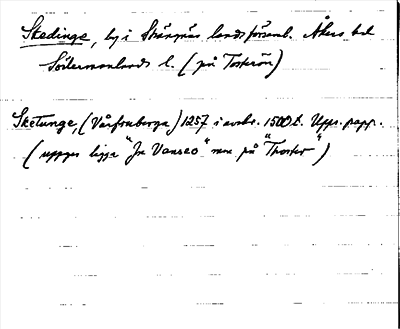 Skedinge, by i Strängnäs landsförsaml. Åkers hd
Södermanlands l. (på Tosterön)
Sketunge, (Vårfruberga) 1257 i avskr. 1500 t. Upps. papp.
(uppges ligga "In Vansco" men på "Thoster")